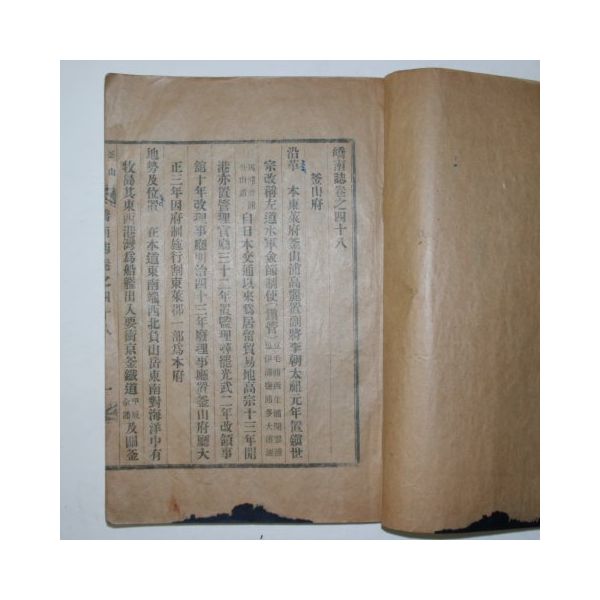 嶠南誌卷之四十八
釜山府
沿革 本東萊府釜山浦高麗置副將李朝太祖元年置鎭世
宗改稱左道水軍僉節制使鎭管
自日本交通以來爲居留貿易地高宗十三年開
港亦置管理官廳三十二年置監理尋罷光武二年改領事
館十年改理事廳明治四十三年廢理事廳置釜山府廳大
正三年因府制施行割東萊郡一部爲本府
地勢及位置 在本道東南端西北負山岳東南對海洋中有
牧島其東西港灣爲船艦出入要衝京釜鐵道及關釜
釜山 嶠南誌卷之四十八 一